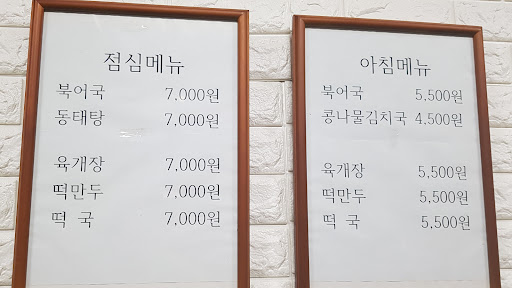 점심메뉴
북어국 7,000원
동태탕 7,000원
육개장 7,000원
떡만두 7,000원
떡 국 7,000원
아침메뉴
북어국 5,500원
콩나물김치국 4,500원
육개장 5,500원
떡만두 5,500원
떡 국 5,500원